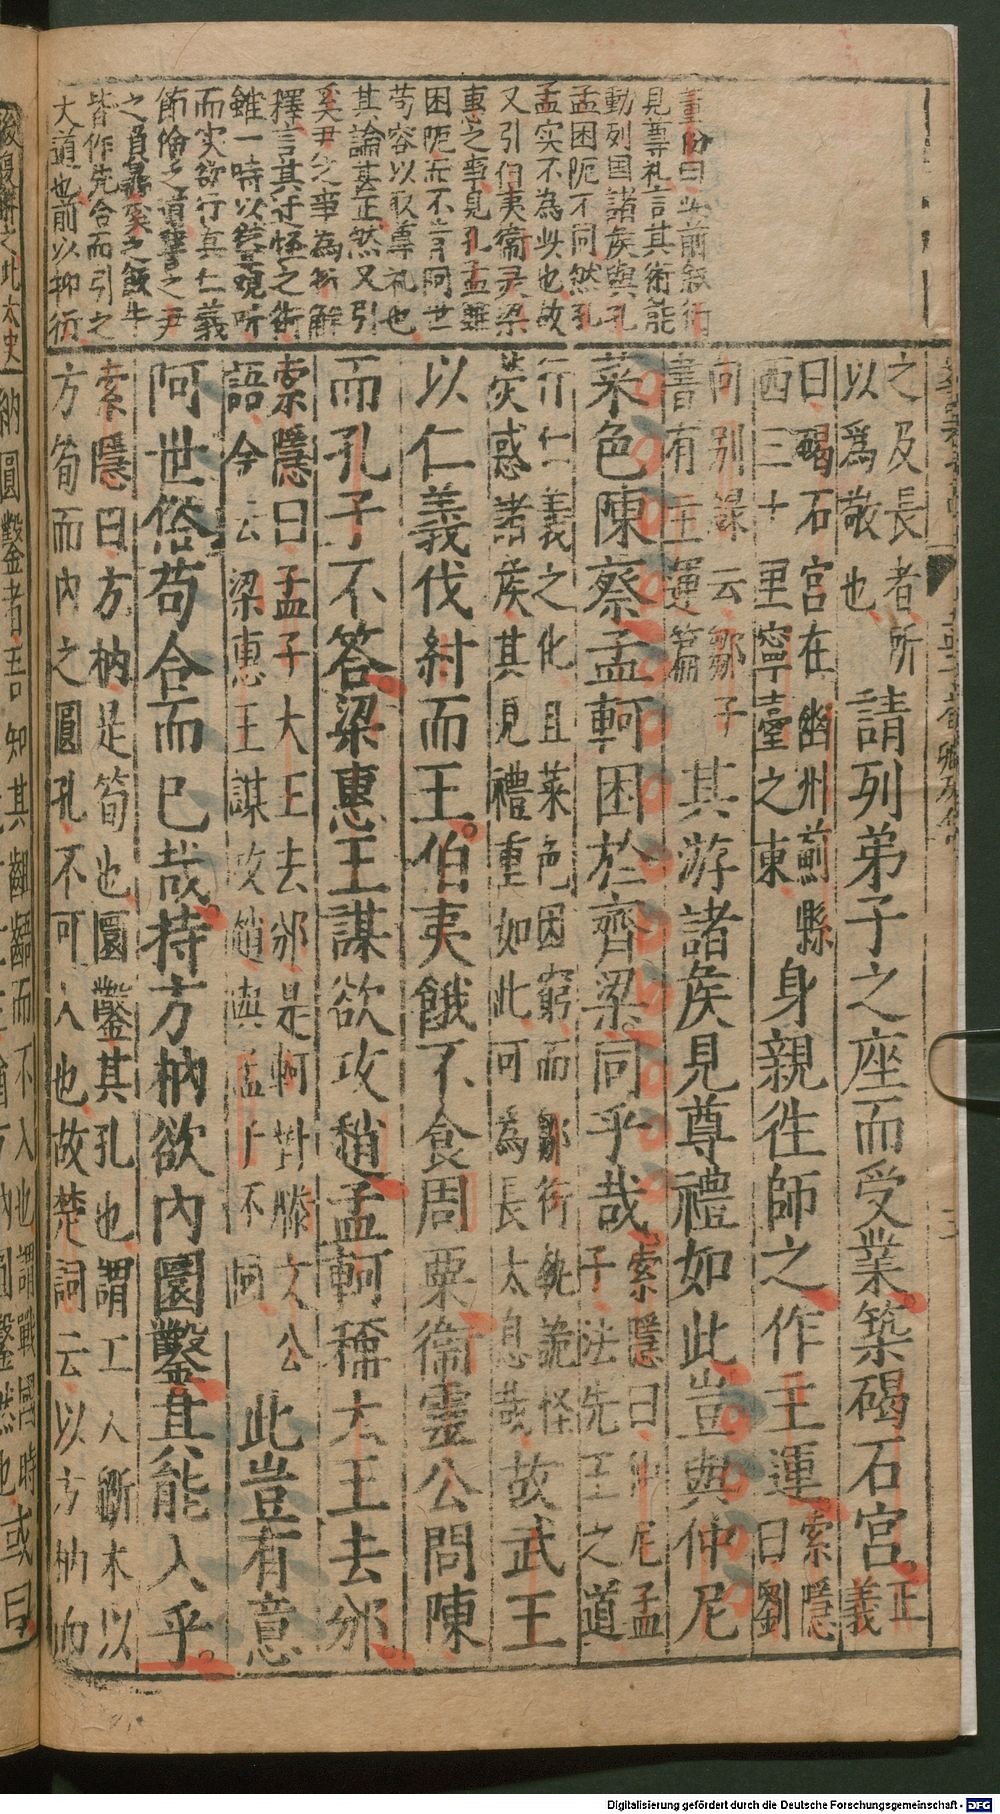 之及長者所
以爲敬也
請列弟子之座而受業築碣石宮
正
義
曰碣石宮在幽州薊縣
西三十里寧臺之東
身親徃師之作主運
索隱
曰劉
向別錄云鄒子
書有主運篇
其游諸矦見尊禮如此豈與仲尼
菜色陳蔡孟軻困於齊梁同乎哉
索隱曰仲尼孟
子法先王之道
行仁義之化且菜色困窮而鄒衍執詭怪
熒惑諸矦其見禮重如此可為長太息哉
故武王
以仁義伐紂而王伯夷餓不食周粟衞靈公問陳
而孔子不答梁惠王謀欲攻趙孟軻稱太王去邠
索隱曰孟子大王去邠是軻對滕文公
語今云梁惠王謀攻趙與孟子不同
此豈有意
阿世俗苟合而已哉持方枘欲內圜鑿其能入乎
索隱曰方枘是筍也圜鑿其孔也謂工人斲木以
方筍而內之圜孔不可入也故楚詞云以方枘而
董份曰此前敘衍
見尊礼言其術能
動列国諸矦與孔
孟困阨不同然孔
孟实不為此也故
又引伯夷衞灵梁
惠之事見孔孟雖
困阨而不肯阿世
苟容以取尊礼也
其論甚正然又引
奚尹之事為衍解
釋言其迂怪之術
雖一時以聳觀听
而实欲行其仁義
節儉之道譬之尹
之負鼎奚之飯牛
皆作先合而引之
大道也前以抑衍
納圓鑿者吾知其齟齬而不入也謂戰國時或曰
Digitalisierung gefördert durch die Deutsche Forschungsgemeinschaft - DFG